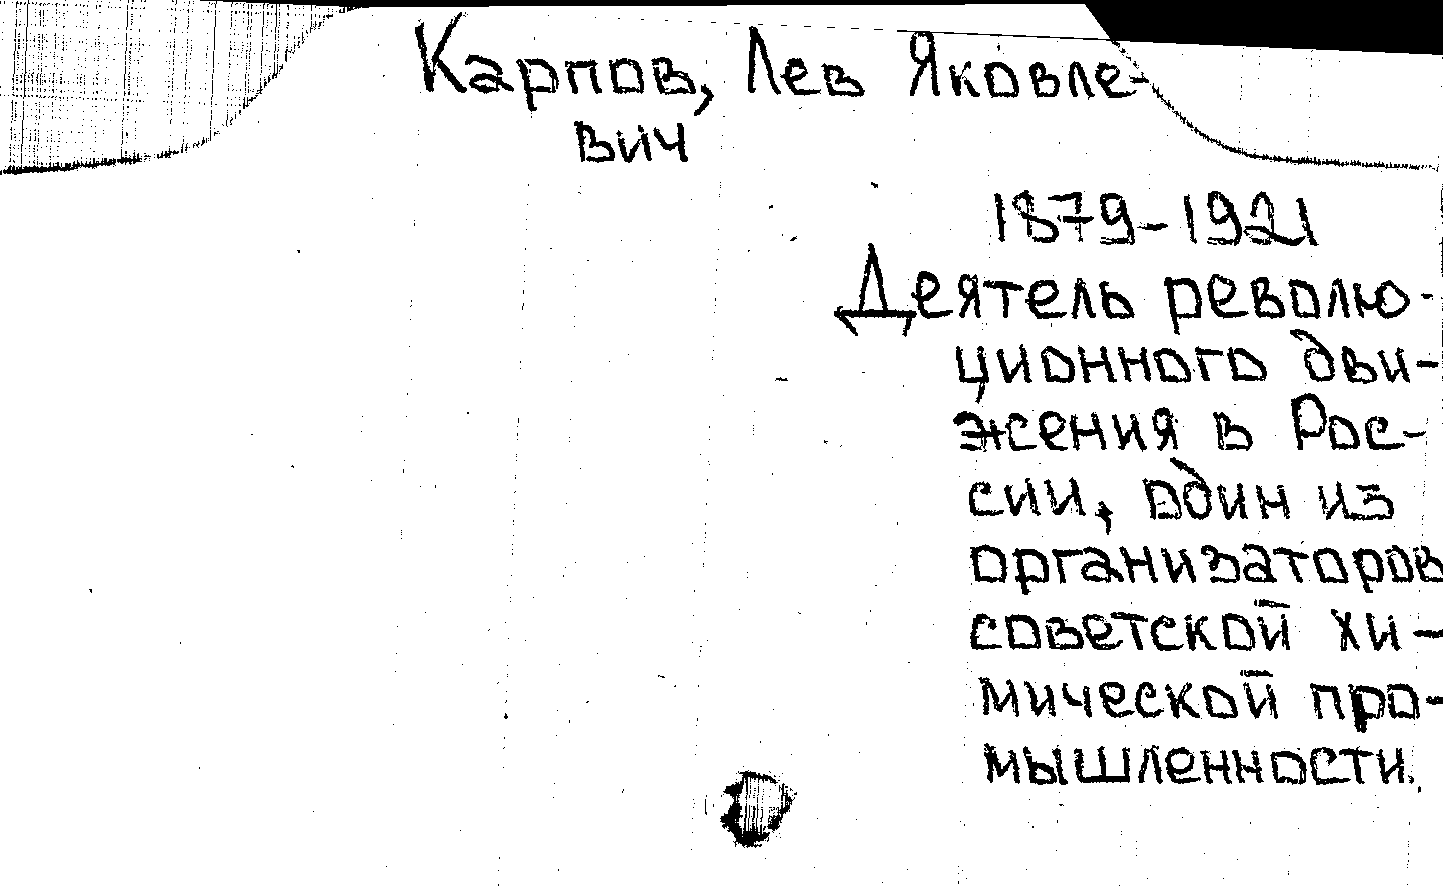 Карпов, Лев Яковле-
вич
1879-1921
Деятель револю-
ционного дви-
жения в Рос-
сии, один из
организаторов
советской хи-
мической про-
мышленности.